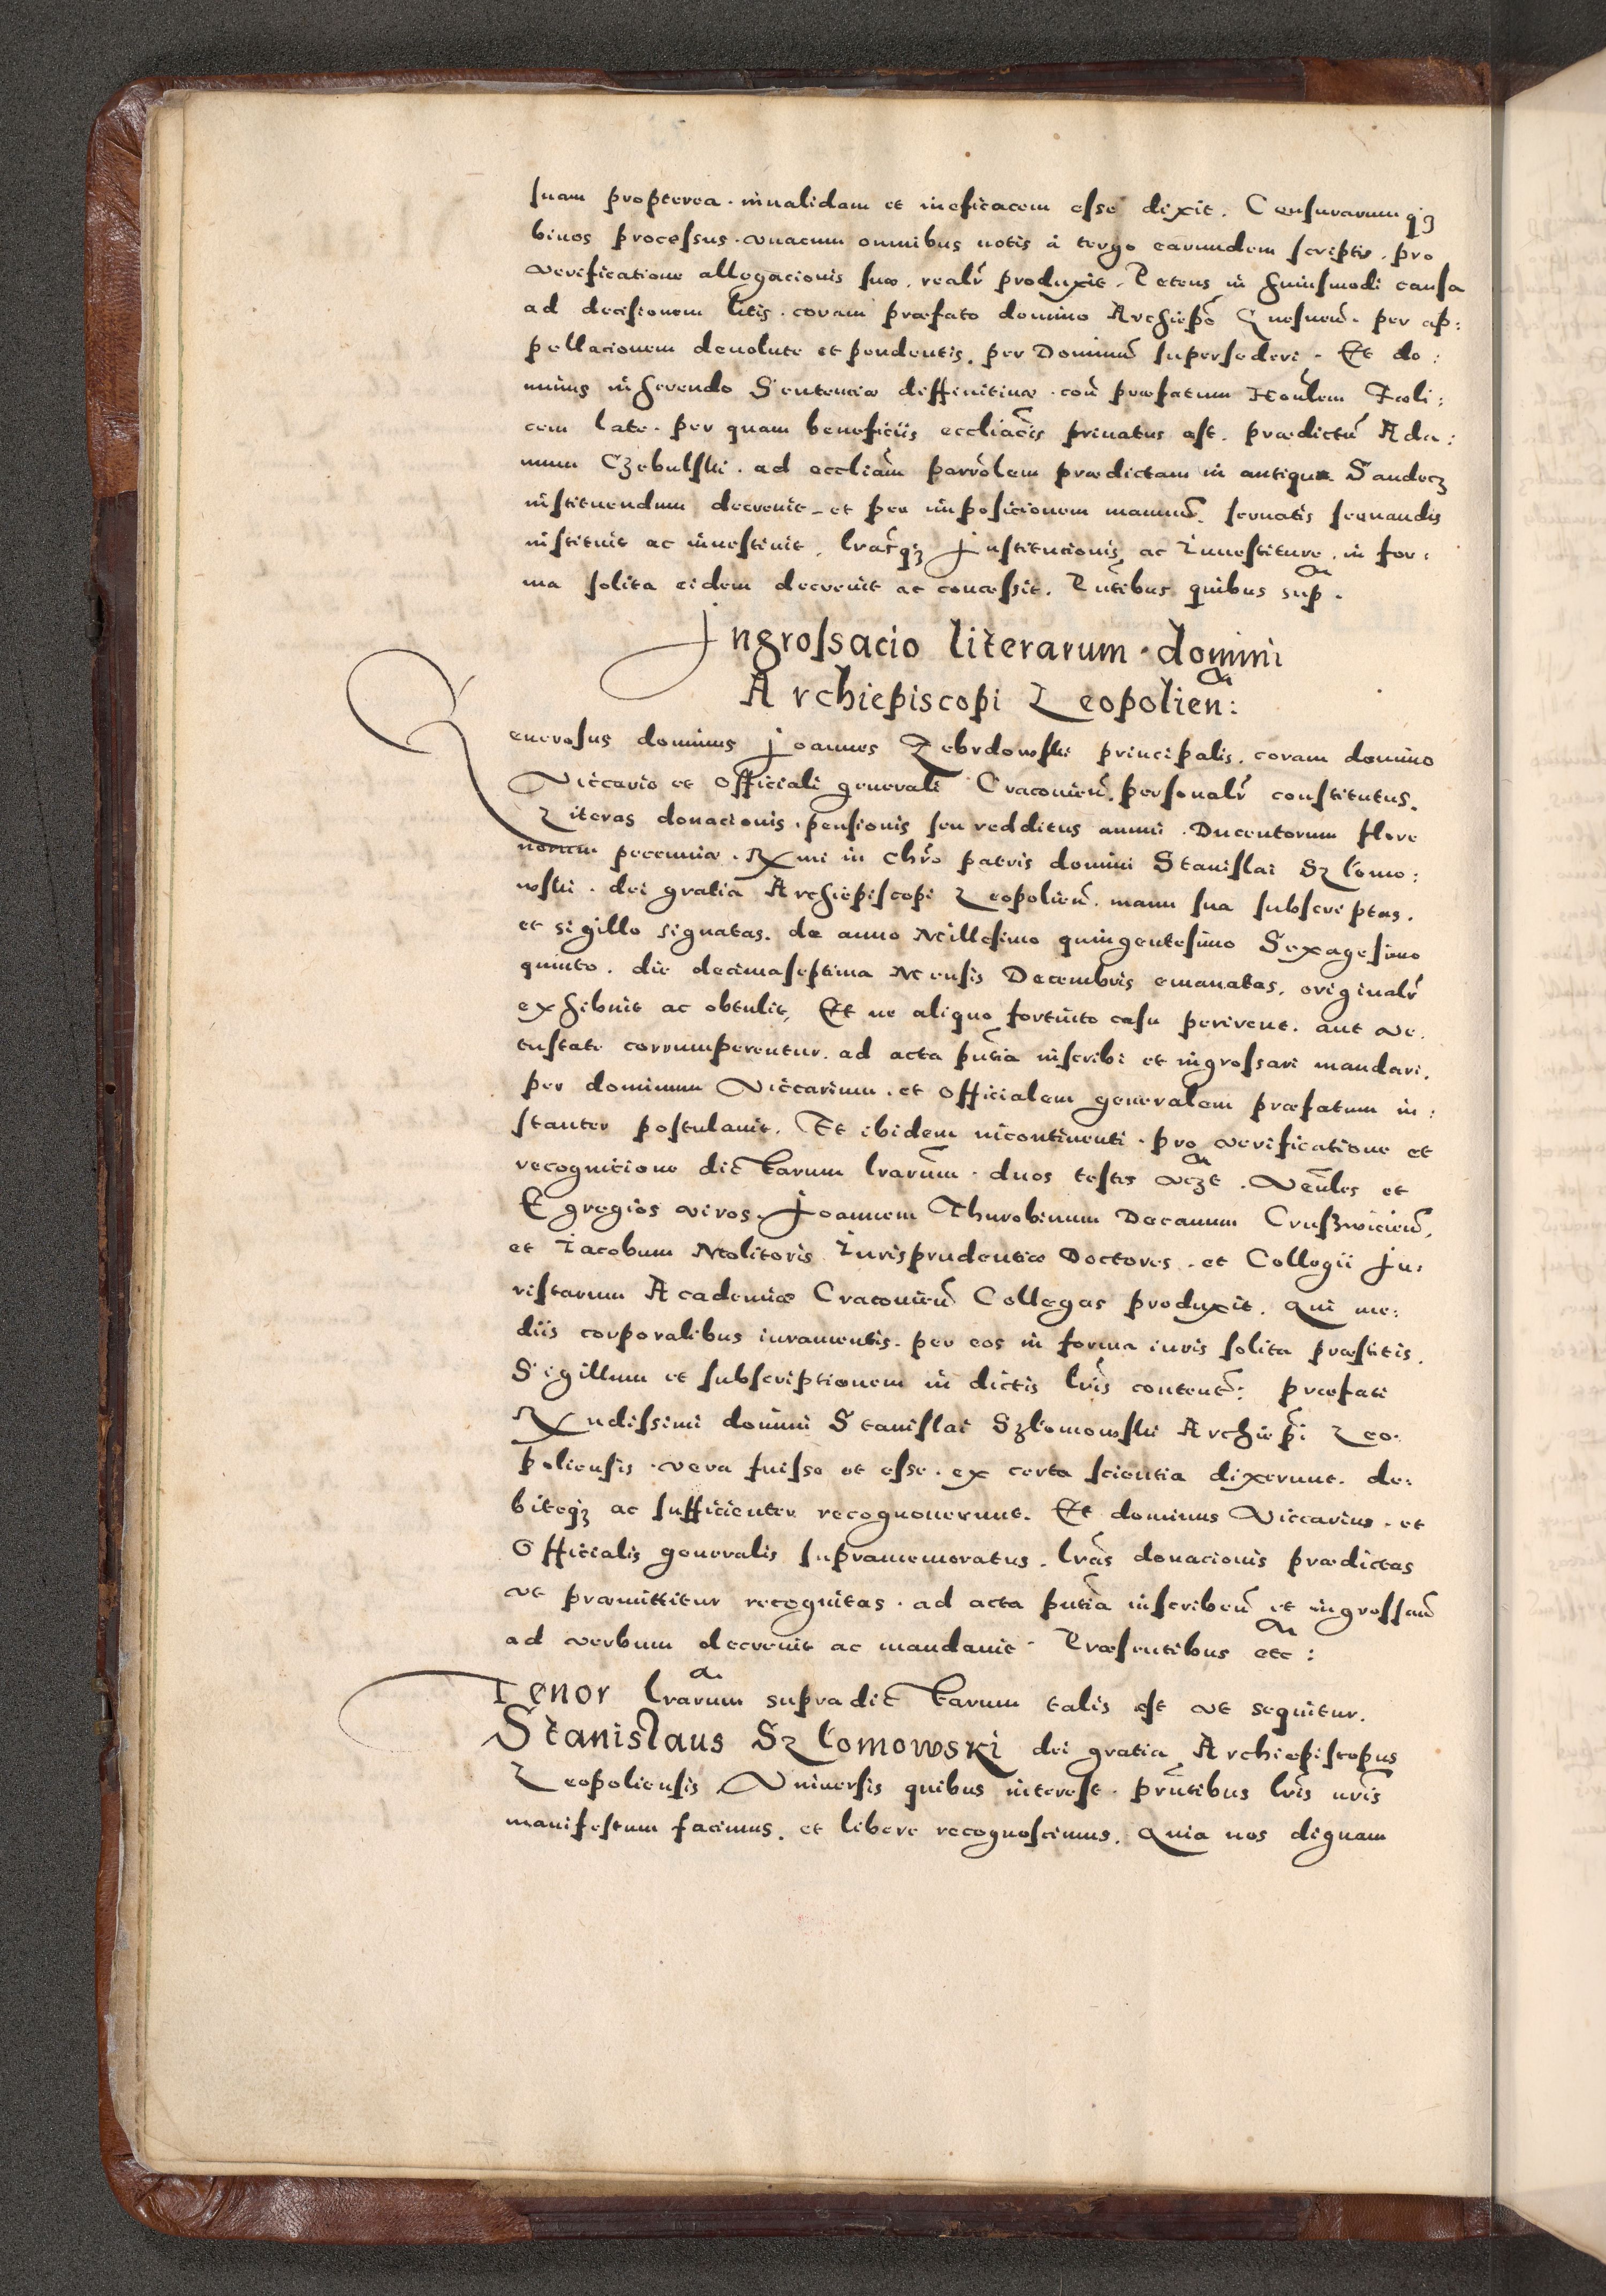 suam propterea. inualidam et ineficacem esse dixit. Censurarumqʒ
binos processus. vnacum omnibus notis à tergo earundem scriptis. pro
verificatione allegacionis suæ. realr̃ produxit. Petens in huiusmodi causa
ad decisionem litis. coram præfato domino Archiepõ Gnesneñ. per ap:
pellacionem deuolute et pendentis. per Dominũ supersederi. Et do:
minus inherendo Sentenciæ diffinitiuæ. coñ præfatum Hoñlem Fæli:
cem late. per quam beneficiis eccliãcis priuatus est. prædictũ Ada:
mum Czebulski. ad eccliãm parrõlem prædictam in antiqua Sandecz
instituendum decreuit et per imposicionem manuũ. seruatis seruandis
instituit ac inuestiuit. lrãsqʒ Institucionis ac Inuestiture. in for:
ma solita eidem decreuit ac concessit. Pñtibus quibus sup̃.
Ingrossacio literarum. domini
Archiepiscopi Leopolien:
Generosus dominus Joannes Zebrdowski principalis. coram domino
Viccario et Officiali generali Cracouieñ. personalr̃ constitutus.
Literas donacionis. pensionis seu redditus annui. Ducentorum flore
norum pecuniæ. Rmi in Chrõ patris domini Stanislai Szlomo:
wski. dei gratia Archiepiscopi Leopolieñ. manu sua subscriptas.
et sigillo signatas. de anno Millesimo quingentesimo Sexagesimo
quinto. die decimaseptima Mensis Decembris emanatas. originalr̃
exhibuit ac obtulit, Et ne aliquo fortuito casu perirent. aut ve.
tustate corrumperentur. ad acta pñtia inscribi et ingrossari mandari.
per dominum Viccarium. et Officialem generalem præfatum in:
stanter postulauit. Et ibidem incontinenti. pro verificatione et
recognicione dictarum lrarũm. duos testes vczt. Veñles et
Egregios viros. Joannem Thurobinum Decanum Cruszwicieñ,
et Iacobum Molitoris Iurisprudentiæ Doctores. et Collegii Ju:
ristarum Academiæ Cracouieñ Collegas produxit. Qui me:
diis corporalibus iuramentis. per eos in forma iuris solita præstitis.
Sigillum et subscriptionem in dictis lrĩs contentã: præfati
Rndissimi domini Stanislai Szlomowski Archiepĩ Leo.
poliensis. vera fuisse et esse. ex certa scientia dixerunt. de:
biteqʒ ac sufficienter recognouerunt. Et dominus Viccarius. et
Officialis generalis supramemoratus. lrãs donacionis prædictas
vt præmittitur recognitas. ad acta pñtia inscribeñ et ingrossañ
ad verbum decreuit ac mandauit. Præsentibus etc:
Tenor lrarum supradictarum talis est vt sequitur.
Stanislaus Szlomowski dei gratia Archiepiscopus
Leopoliensis Vniuersis quibus interest. prñtibus lrĩs nrĩs
manifestum facimus. et libere recognoscimus. Quia nos dignam